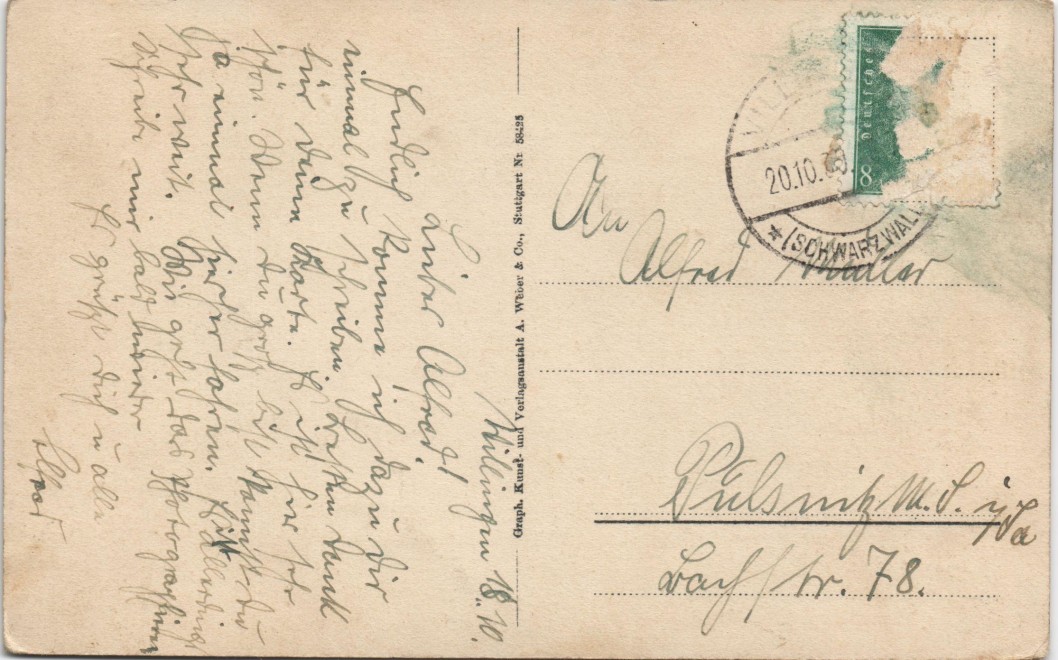 Villingen 18.10.
Lieber Alfred!
Endlich komme ich dazu dir
einmal zu schreiben. Besten Dank
für deine Karte. Es ist hir sehr
schön. Wenn du groß bist kannst du
ja einmal hierher fahren. Ist allerdings
sehr weit. Wie geht das Photografieren
schreibe mir bald wieder
Es grüßt dich u alle
Graph. Kunst- und Verlagsanstalt A. Weber & Co., Stuttgart Nr 58425
VILL
20.10.
* (SCHWARZWALD
Deutsches
8
An
Alfred
Pulsnitz M.S. i/Sa
Bachstr. 78.